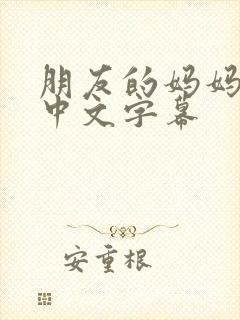 朋友的妈妈
中文字幕
安重根